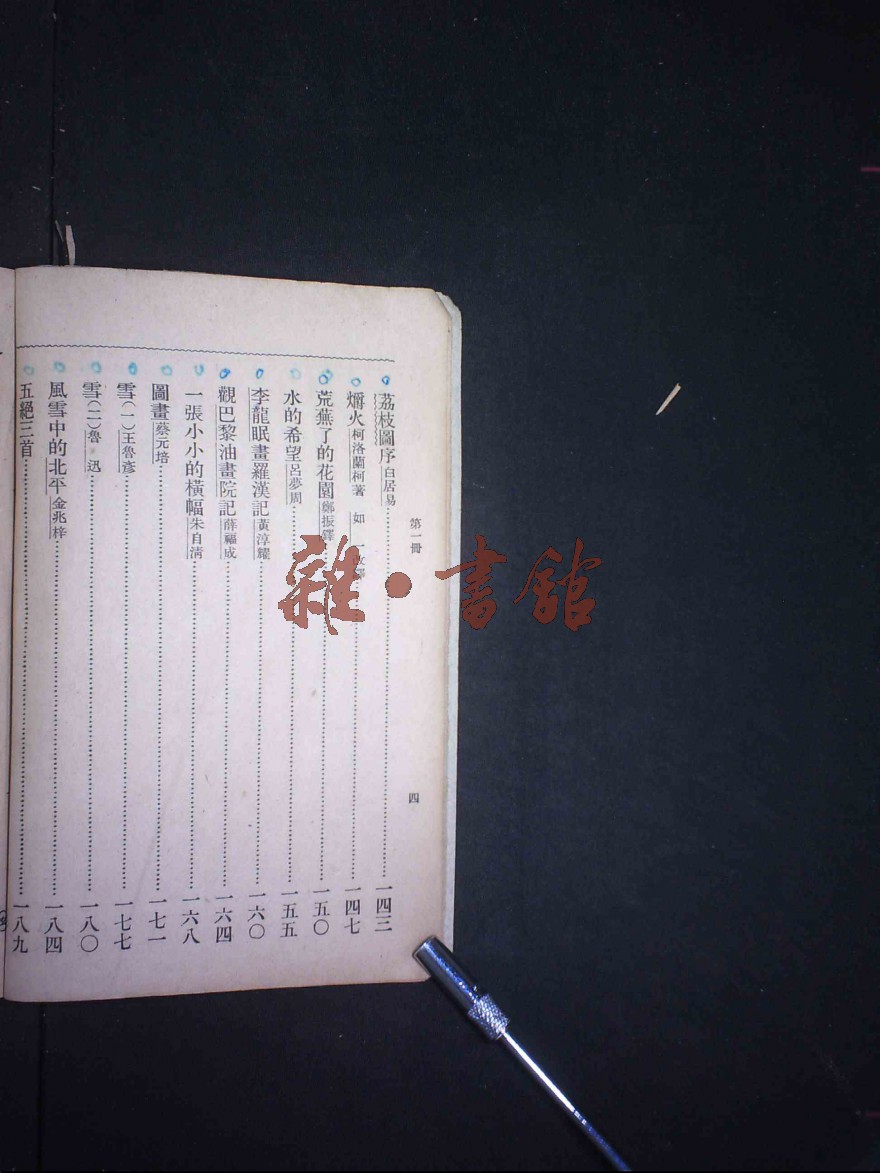 第一冊
四
荔枝圖序 白居易 一四三
爝火 柯洛蘭柯著 如一 一四七
荒蕪了的花園 鄭振鐸 一五〇
水的希望 呂夢周 一五五
李龍眠畫羅漢記 黃淳耀 一六〇
觀巴黎油畫院記 薛福成 一六四
一張小小的橫幅 朱自清 一六八
圖畫 蔡元培 一七一
雪(一) 王魯彥 一七七
雪(二) 魯迅 一八〇
風雪中的北平 金兆梓 一八四
五絕三首 一八九
雜·書館